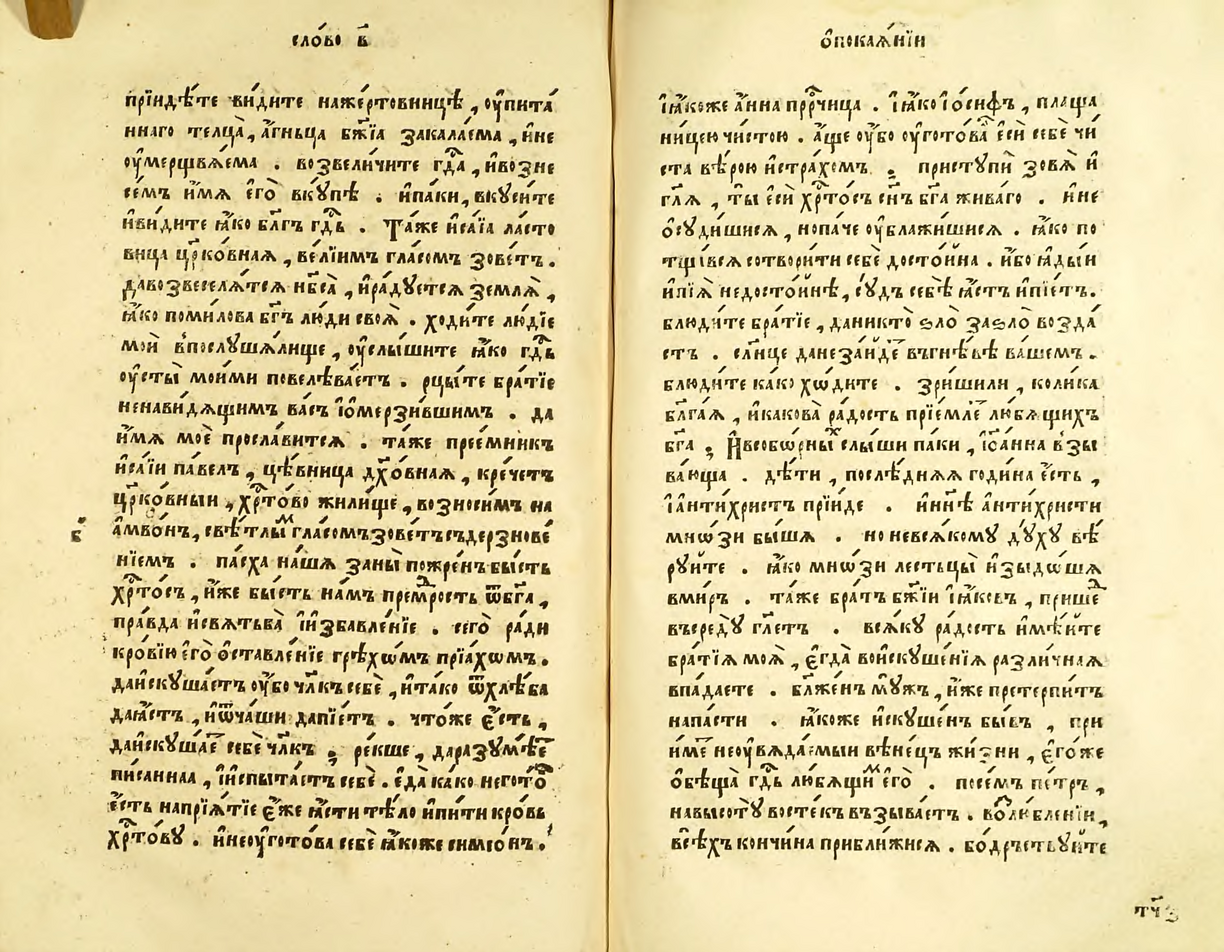 сло́во в҃
прїидѣ́те ви́дите наже́ртовницѣ , ѹ҆пита́
ннаго телца̀ , а҆́гньца бж҃їа закала́ема , и҆не
ѹ҆мерщвлѧ́ема . возвели́чите гдⷭ҇а , и҆возне
се́мъ и҆́мѧ е҆го̀ вкꙋ́пѣ . и҆па́ки , вкꙋси́те
и҆ви́дите ꙗ҆́ко бл҃гъ гдⷭ҇ь . Та́же и҆са́їа ла́сто
вица цр҃ко́внаѧ , ве́лїимъ гла́сомъ зове́тъ .
давозвеселѧ́тсѧ нб҃са̀ , и҆ра́дꙋетсѧ землѧ̀ ,
ꙗ҆́ко поми́лова бг҃ъ лю́ди своѧ̀ . ходи́те лю́дїе
мои̑ впослꙋшѧ́лище , ѹ҆слы́шите ꙗ҆́ко гдⷭ҇ь
ѹ҆сты̀ мои́ми повелѣва́етъ . рцы́те бра́тїе
ненави́дѧщимъ ва́съ і҆омерзи́вшимъ . да
и҆́мѧ моѐ просла́витсѧ . та́же прее́мникъ
и҆са́їи па́велъ , цѣ́вница дх҃о́внаѧ , кре́четъ
цр҃ко́вныи , хрⷭ҇то́во жили́ще , возноси́мъ на
а҆мво́нъ , свѣ́тлыⷨ гла́сомъ зове́тъ съдерзнове́
нїемъ . па́сха на́шѧ заны̀ пожре́нъ бы́сть
хрⷭ҇то́съ , и҆́же бы́сть на́мъ премⷣрость ѿбг҃а ,
пра́вда и҆свѧтьба̀ і҆и҆збавле́нїе . сего̀ ра́ди
кро́вїю е҆го̀ ѻ҆ставле́нїе грѣхѡ́мъ прїа́хомъ .
даи҆скꙋша́етъ ѹ҆́бо чл҃къ себѐ , и҆та́ко ѿхлѣ́ба
даꙗ҆́стъ , и҆ѿча́ши дапїе́тъ . что́же є҆́сть ,
даи҆скꙋша́еⷮ себѐ чл҃къ ; ре́кше , даразꙋмѣ́еⷮ
пи́саннаа , і҆и҆спыта́етъ себѐ . е҆да̀ ка́ко негото́въ
є҆́сть напрїѧ́тїе є҆́же ꙗ҆́сти тѣ́ло и҆пи́ти кро́вь
хрⷭ҇то́вꙋ . и҆неѹ҆гото́ва себѐ ꙗ҆́коже симео́нъ .
в҃
ѻ҆покаѧ́нїи
і҆ꙗ҆́коже а҆́нна прⷪ҇рчица . і҆ꙗ҆́ко і҆о́сифъ , плаща
ни́цею чи́стою . а҆́ще ѹ҆́бо ѹ҆гото́ваⷧ҇ е҆сѝ себѐ чи́
ста вѣ́рою и҆стра́хомъ . пристꙋпѝ зовѧ̀ и҆
гл҃ѧ , ты̀ е҆сѝ хрⷭ҇то́съ сн҃ъ бг҃а жива́го . и҆не
ѻ҆сꙋ́дишисѧ , нопа́че ѹ҆блажи́шисѧ . ꙗ҆́ко по
тща́всѧ сотвори́ти себѐ досто́йна . и҆́бо ꙗ҆ды́и
и҆пїѧ̀ недосто́йнѣ , сꙋ́дъ себѣ̀ ꙗ҆́стъ и҆пїе́тъ .
блюди́те бра́тїе , даникто̀ ѕло̀ заѕло̀ возда́
стъ . сл҃нце данеза́йдеⷮ въгнѣ́вѣ ва́шемъ .
блюди́те ка́ко хѡ́дите . зри́шили , коли́ка
бл҃га́ѧ , и҆какова̀ ра́дость прїе́млеⷮ лю́бѧщихъ
бг҃а ; И҆всебѡ́рныⷯ слы́ши па́ки , і҆ѻ҆а́нна взы
ва́юща . дѣ́ти , послѣ́днѧѧ годи́на є҆́сть ,
і҆а҆нти́христъ прїи́де . и҆ни́нѣ а҆нти́христи
мнѡ́зи бы́шѧ . но невсѧ́комꙋ дꙋ́хꙋ вѣ́
рꙋйте . ꙗ҆́ко мнѡ́зи лестьцы̀ и҆зыдо́шѧ
вми́ръ . та́же бра́тъ бж҃їи і҆ꙗ҆́ковъ , прише́ⷣ
въсредꙋ̀ гл҃етъ . всѧ́кꙋ ра́дость и҆мѣ́йте
бра́тїѧ моѧ̀ , є҆гда̀ вои҆скꙋше́нїѧ разли́чнаѧ
впада́ете . бл҃же́нъ мꙋ́жъ , и҆́же претерпи́тъ
напа́сти . ꙗ҆́коже и҆скꙋше́нъ бы́въ , при
и҆́меⷮ неѹ҆вѧда́емыи вѣне́цъ жи́зни , є҆го́же
ѻ҆бѣща̀ гдⷭ҇ь лю́бѧщиⷨ е҆го̀ . посе́мъ пе́тръ ,
навысотꙋ̀ восте́къ възыва́етъ . возлю́бленїи ,
всѣ́хъ кончи́на прибли́жисѧ . бо́дръствꙋйте